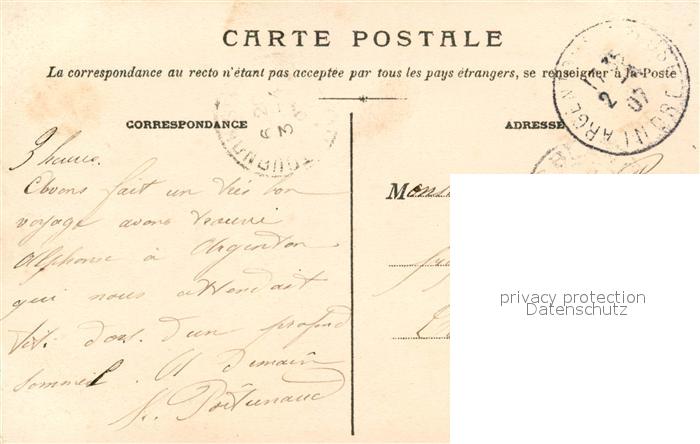 CARTE POSTALE
La correspondance au recto n'étant pas acceptée par tous les pays étrangers, se renseigner à la Poste
CORRESPONDANCE
ADRESSE
3 heures.
Avons fait un très bon
voyage avons trouvé
Alphonse à Argenton
qui nous attendait
Titi dort d'un profond
sommeil. A demain
Mons
privacy protection
Datenschutz
2
07